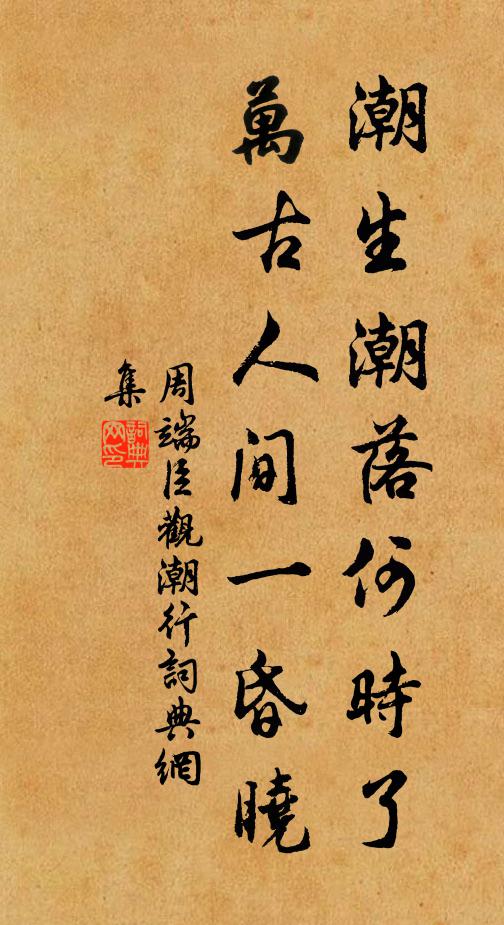 潮生潮落何時了
萬古人間一昏曉
周端臣觀潮行詞典網
集
詞典
网印